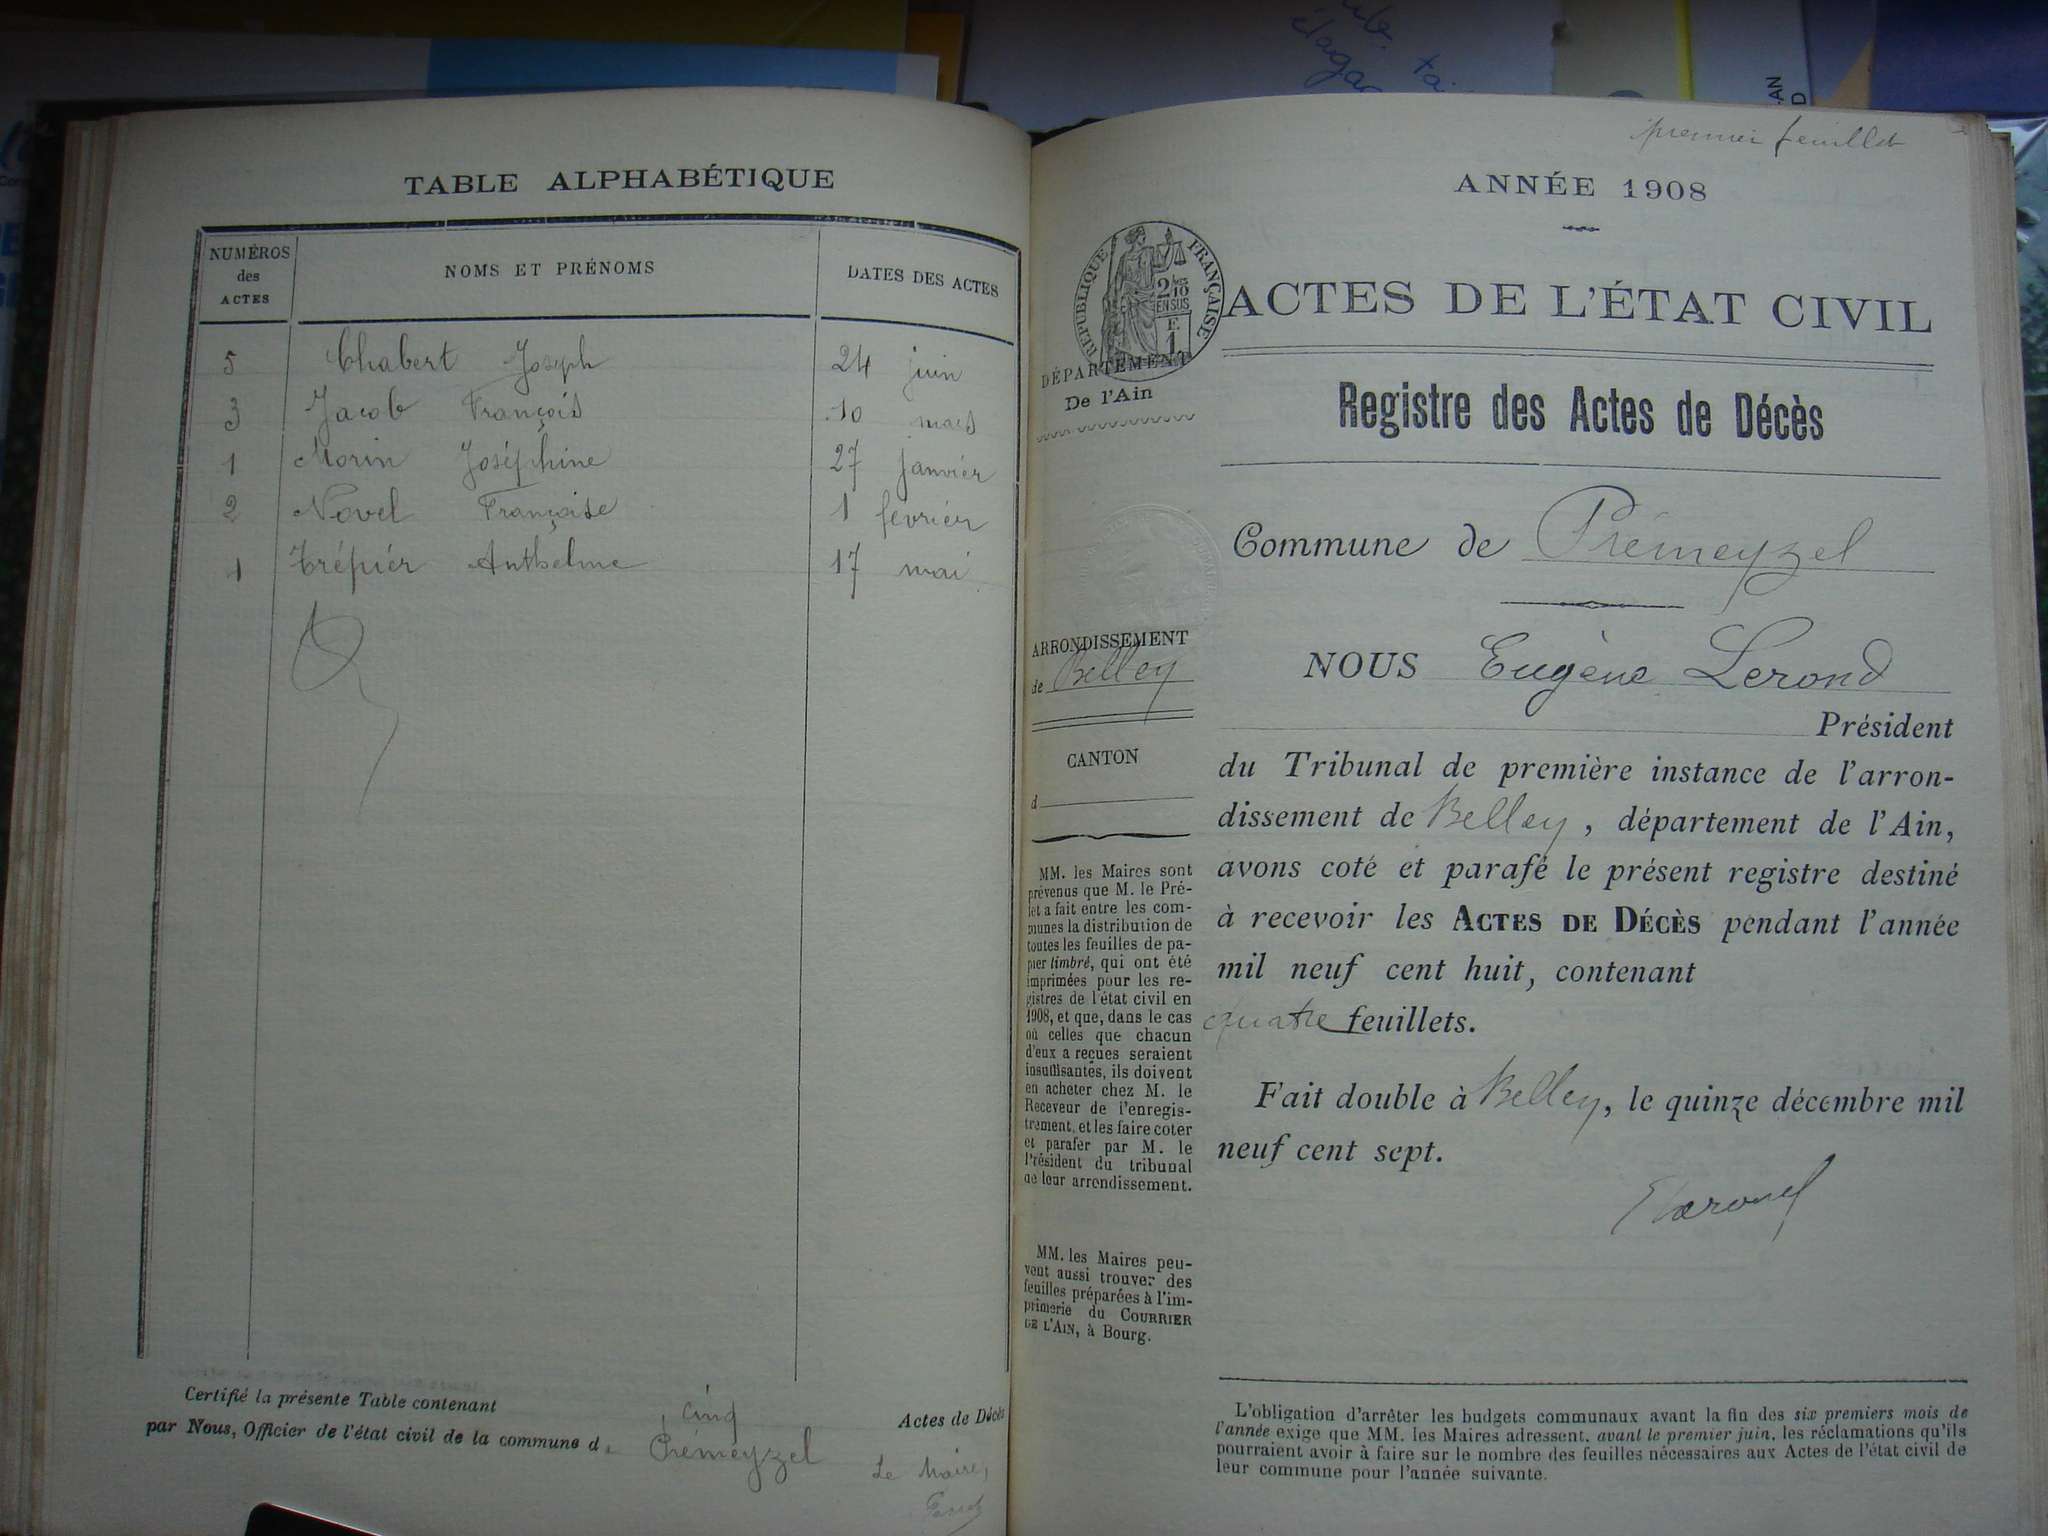 TABLE ALPHABÉTIQUE
NUMÉROS
des
ACTES
NOMS ET PRÉNOMS
DATES DES ACTES
5 Chabert Joseph 24 juin
3 Jacob François 10 mars
1 Morin Joséphine 27 janvier
2 Novel Françoise 1 février
4 Trépier Anthelme 17 mai
Certifié la présente Table contenant cinq Actes de Décès
par Nous, Officier de l'état civil de la commune de Prémeyzel
Le Maire,
premier feuillet
ANNÉE 1908
RÉPUBLIQUE FRANÇAISE
2/10
EN SUS
F.
1
ACTES DE L'ÉTAT CIVIL
DÉPARTEMENT
De l'Ain
Registre des Actes de Décès
Commune de Prémeyzel
ARRONDISSEMENT
de Belley
CANTON
d
MM. les Maires sont
prévenus que M. le Pré-
fet a fait entre les com-
munes la distribution de
toutes les feuilles de pa-
pier timbré, qui ont été
imprimées pour les re-
gistres de l'état civil en
1908, et que, dans le cas
où celles que chacun
d'eux a reçues seraient
insuffisantes, ils doivent
en acheter chez M. le
Receveur de l'enregis-
trement, et les faire coter
et parafer par M. le
Président du tribunal
de leur arrondissement.
MM. les Maires peu-
vent aussi trouver des
feuilles préparées à l'im-
primerie du COURRIER
DE L'AIN, à Bourg.
NOUS Eugène Lerond
Président
du Tribunal de première instance de l'arron-
dissement de Belley, département de l'Ain,
avons coté et parafé le présent registre destiné
à recevoir les ACTES DE DÉCÈS pendant l'année
mil neuf cent huit, contenant
quatre feuillets.
Fait double à Belley, le quinze décembre mil
neuf cent sept.
L'obligation d'arrêter les budgets communaux avant la fin des six premiers mois de
l'année exige que MM. les Maires adressent, avant le premier juin, les réclamations qu'ils
pourraient avoir à faire sur le nombre des feuilles nécessaires aux Actes de l'état civil de
leur commune pour l'année suivante.